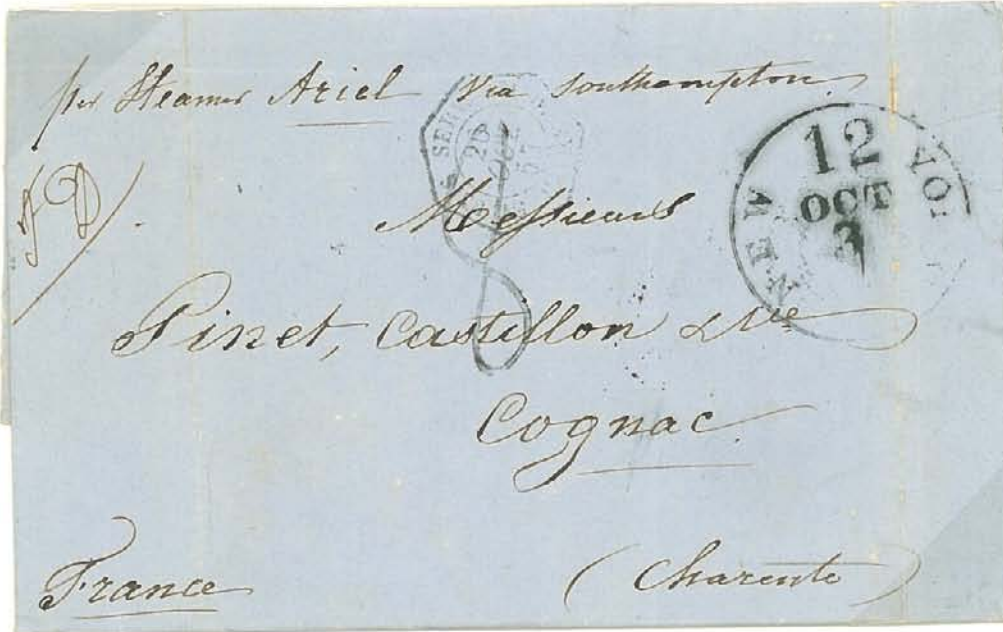 per Steamer Ariel Via Southampton
SER
20
OCT
5
12
OCT
3
NEW YO
Messieurs
8
Pinet, Castillon & Cie
Cognac.
France
(Charente)